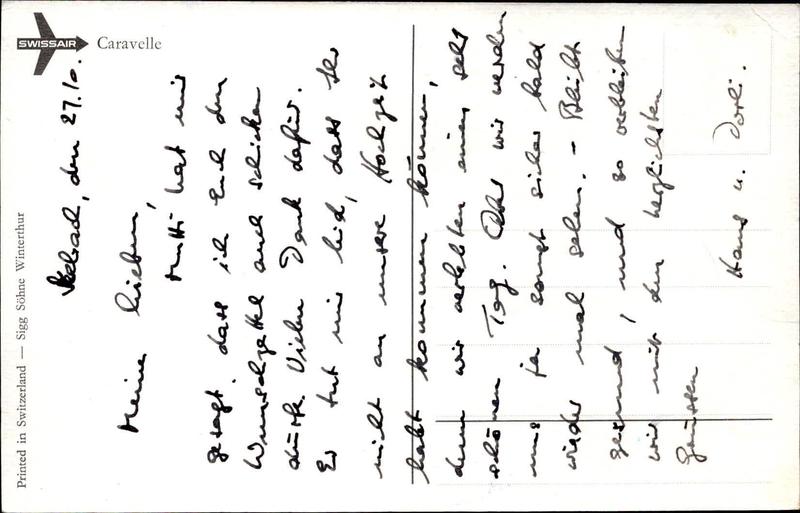 SWISSAIR
Caravelle
Printed in Switzerland — Sigg Söhne Winterthur
den 27.10.
Meine lieben,
Mutti hat mir
gesagt, dass ich Euch den
Wunschzettel auch schicken
dürfe. Vielen Dank dafür.
Es tut mir leid, dass Ihr
nicht an unsere Hochzeit
habt kommen können,
denn wir verlebten einen sehr
schönen Tag. Aber wir werden
uns ja sonst sicher bald
wieder mal sehen. – Bleibt
gesund, und so verbleiben
wir mit den herzlichsten
Grüssen
Hans u. Dorli.